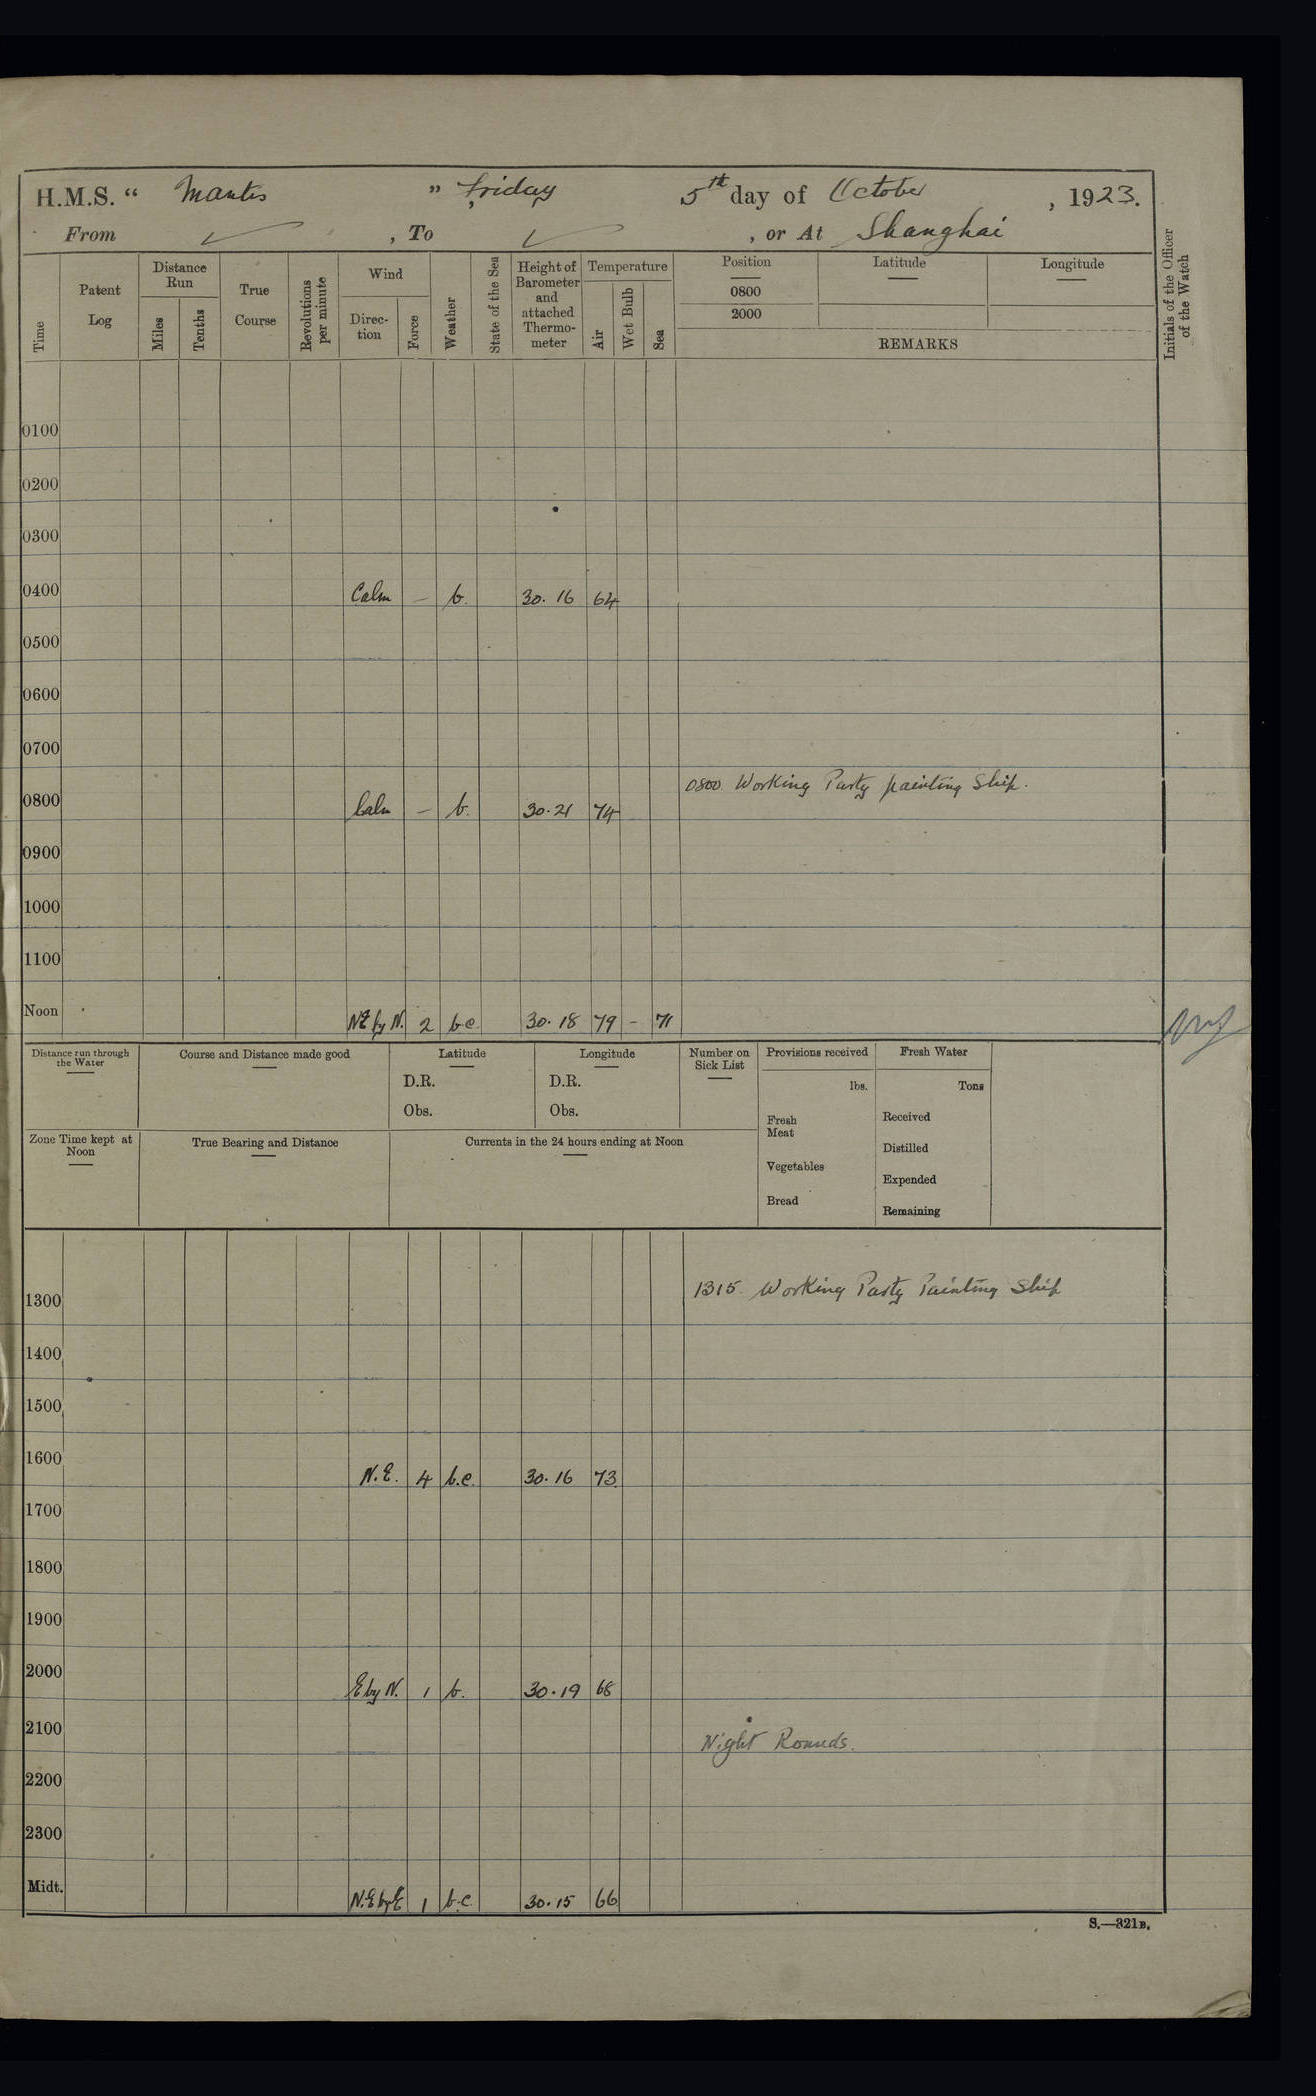 H.M.S. “ Mantis ” Friday 5th day of October , 1923.
From ✓ , To ✓ , or At Shanghai
Time
Patent Log
Distance Run
Miles
Tenths
True Course
Revolutions per minute
Wind
Direc-tion
Force
Weather
State of the Sea
Height of Barometer and attached Thermo-meter
Temperature
Air
Wet Bulb
Sea
Position
0800
2000
Latitude
Longitude
REMARKS
Initials of the Officer of the Watch
0100
0200
0300
0400 Calm — b. 30.16 64
0500
0600
0700
0800 Calm — b. 30.21 74 0800 Working Party painting Ship.
0900
1000
1100
Noon NE by N. 2 b.c. 30.18 79 – 71
Distance run through the Water
Course and Distance made good
Latitude
D.R.
Obs.
Longitude
D.R.
Obs.
Number on Sick List
Provisions received
lbs.
Fresh Meat
Vegetables
Bread
Fresh Water
Tons
Received
Distilled
Expended
Remaining
Zone Time kept at Noon
True Bearing and Distance
Currents in the 24 hours ending at Noon
1300 1315. Working Party Painting Ship
1400
1500
1600 N.E. 4 b.c. 30.16 73
1700
1800
1900
2000 E by N. 1 b. 30.19 68
2100 Night Rounds.
2200
2300
Midt. N.E by E 1 b.c. 30.15 66
S.—321B.